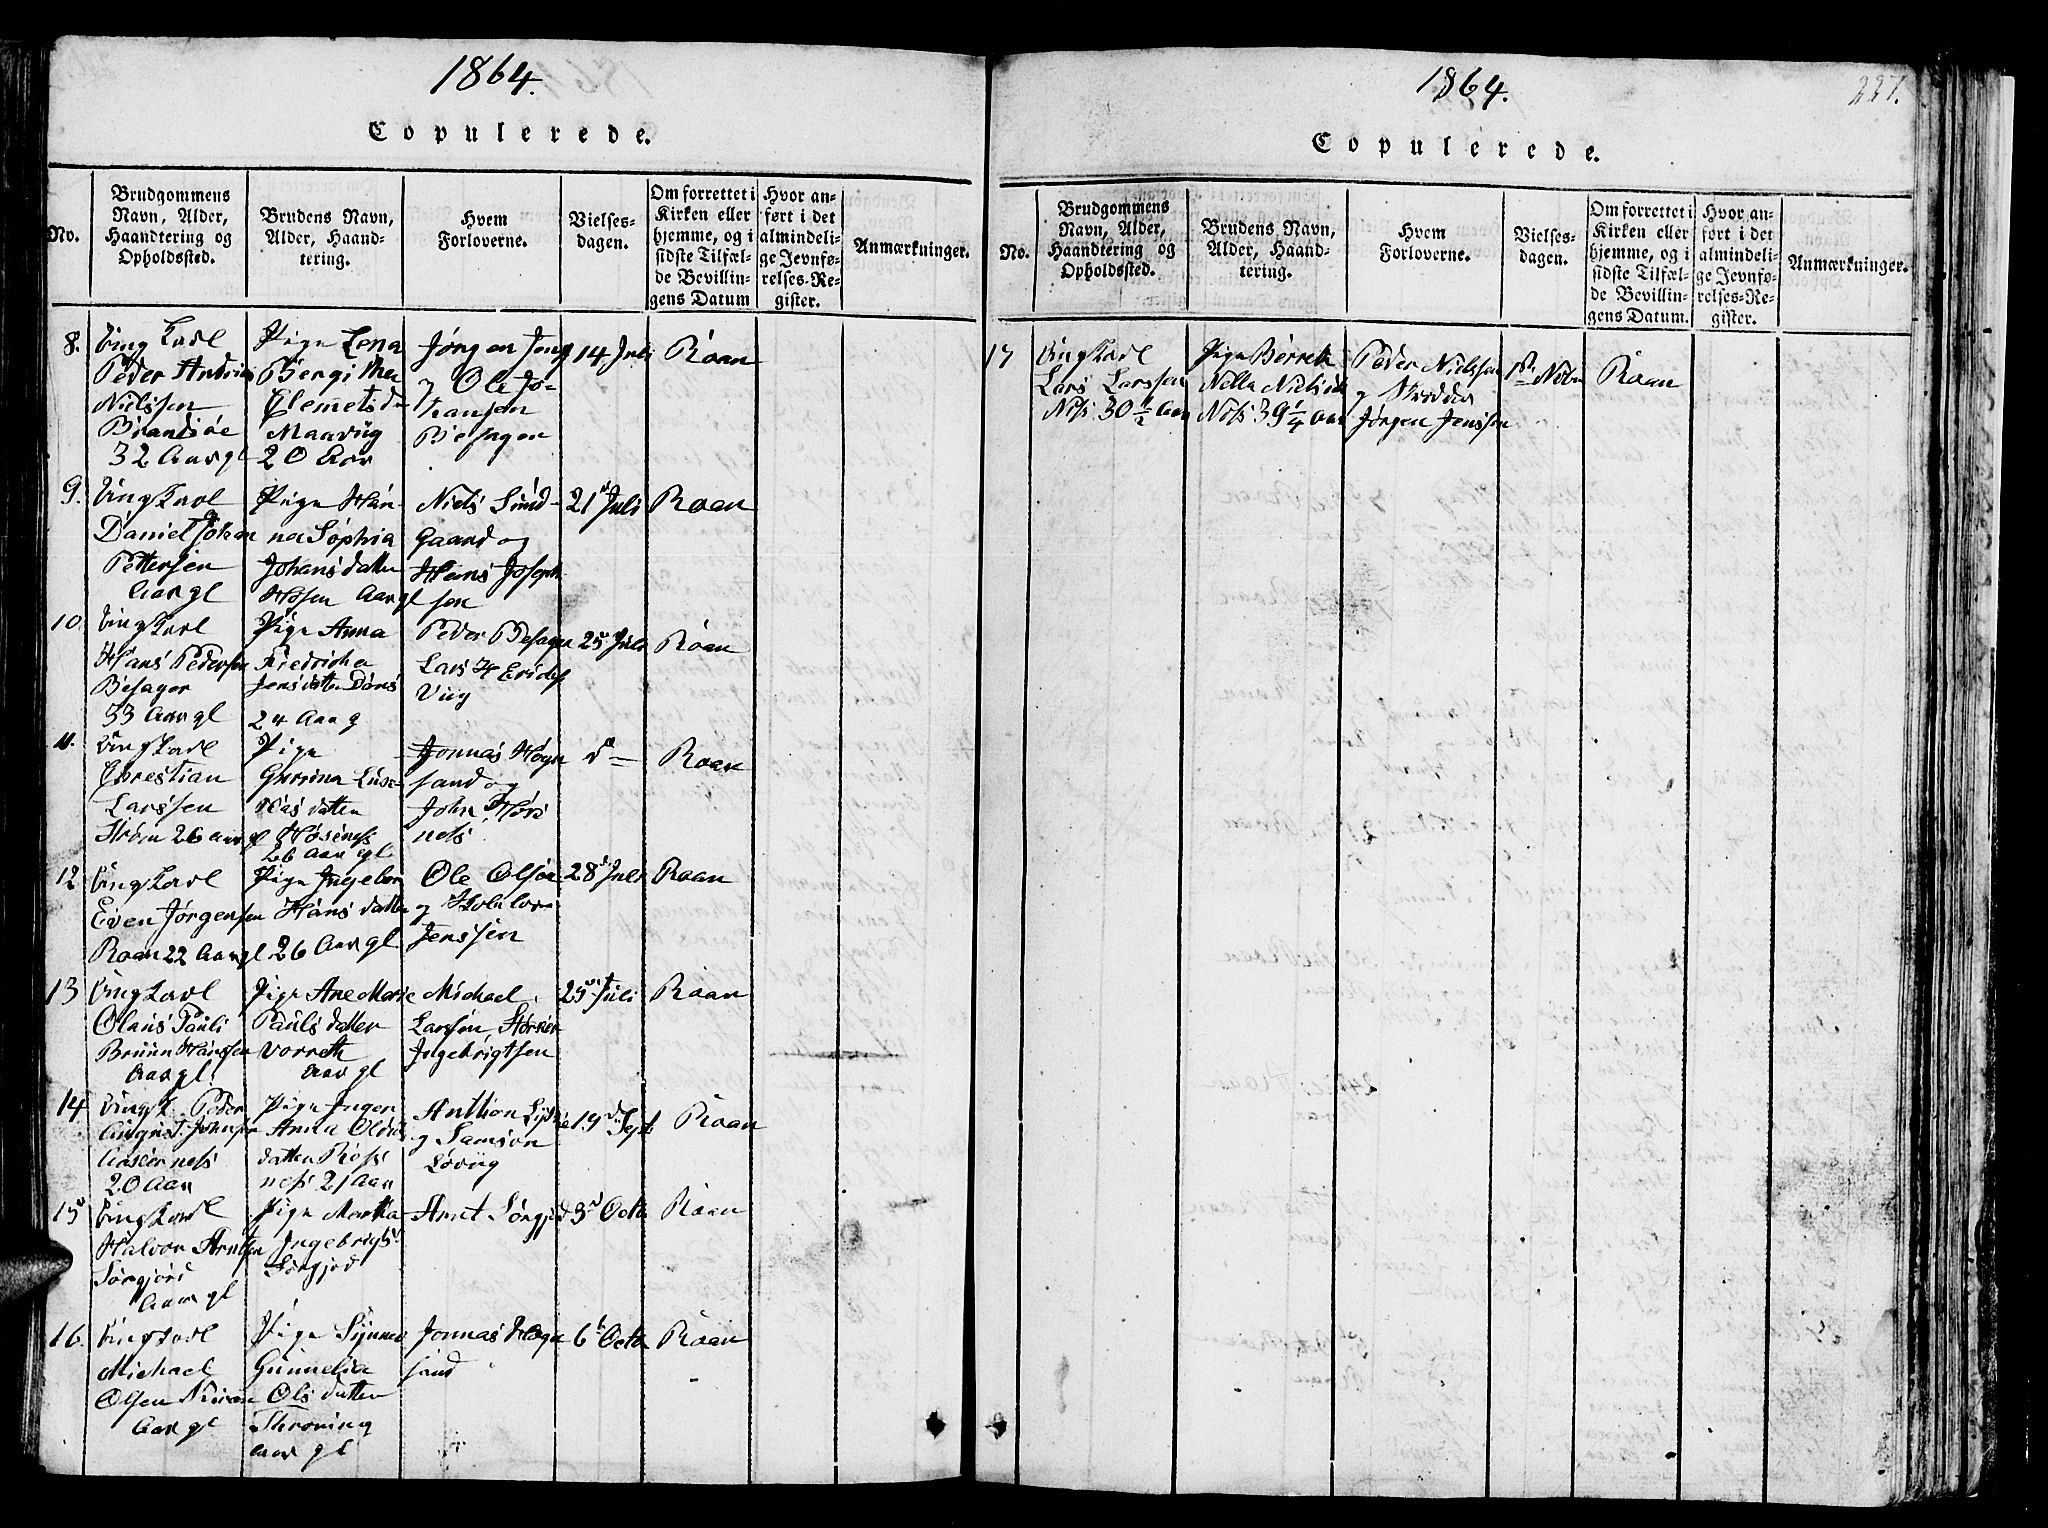 1864.
Copulerede.
No.
Brudgommens Navn, Alder, Haandtering og Opholdssted.
Brudens Navn, Alder, Haandtering.
Hvem Forloverne.
Vielsesdagen.
Om forrettet i Kirken eller hjemme, og i sidste Tilfælde Bevillingens Datum
Hvor anført i det almindelige Jevnførelses-Register.
Anmærkninger.
8.
Ung Karl
Peder Andreas
Nielssen
Brandsøe
32 Aar gl
Pige Lena
Bergithe
Clemetsd
Maavug
20 Aar
Jørgen
og Ole Jo-
hansen
Besagen
14 Juli
Roan
9.
Ung Karl
Daniel Johan
Pettersen
Aar gl
Pige Han-
na Sophia
Johansdatter
Hosen Aar gl
Niels Sund-
Gaard og
Hans Joseph
sen
21 Juli
Roan
10.
Ung Karl
Hans Pedersen
Besager
33 Aar gl
Pige Anna
Fredricha
Jensdatter
24 Aar g
Peder Besager
Lars H
Viig
25 Juli
Roan
11.
Ung Karl
Chrestian
Larssen
Strøm 26 aar gl
Pige
Gursina
datter
Hoseness
26 Aar gl.
Jonnas Hogn
sand og
John
ness
d
Roan
12
Ung Karl
Even Jørgensen
Roan 22 Aar gl
Pige Ingebor
Hans datter
26 Aar gl
Ole Olsen
og
Jenssen
28 Juli
Roan
13
Ung Karl
Olaus Pauli
Bruun Hanssen
Aar gl.
Pige Ane Marie
Pauls datter
Vorreth
Aar gl
Michael
Larssen
Ingebrigtsen
25 Juli
Roan
14
Ung K. Peder
August Johnsen
20 Aar
Pige Inger
Anna
datter
ness 21 Aar
Anthon
og Samson
Løvug
19 Sept
Roan
15
Ung Karl
Halvor Arntsen
Sørgjerd
Aar gl
Pige Martha
Ingebrigts
Sørgjerd
Arnt Sørgjerd
3 Octb
Roan
16.
Ung Karl
Michael
Olsen
Aar gl
Pige
Gunnelia
Olsdatter
Aar gl
Jonnas Hogn
sand
6 Octb
Roan
1864.
227.
Copulerede.
No.
Brudgommens Navn, Alder, Haandtering og Opholdssted.
Brudens Navn, Alder, Haandtering.
Hvem Forloverne.
Vielsesdagen.
Om forrettet i Kirken eller hjemme, og i sidste Tilfælde Bevillingens Datum.
Hvor anført i det almindelige Jevnførelses-Register.
Anmærkninger.
17
Ung Karl
Lars Larssen
Ness 30 1/2 Aar
Pige
Nella
Ness 39 1/4 aar
Peder Nielssen
og
Jørgen Jenssen
1 Novbr
Roan